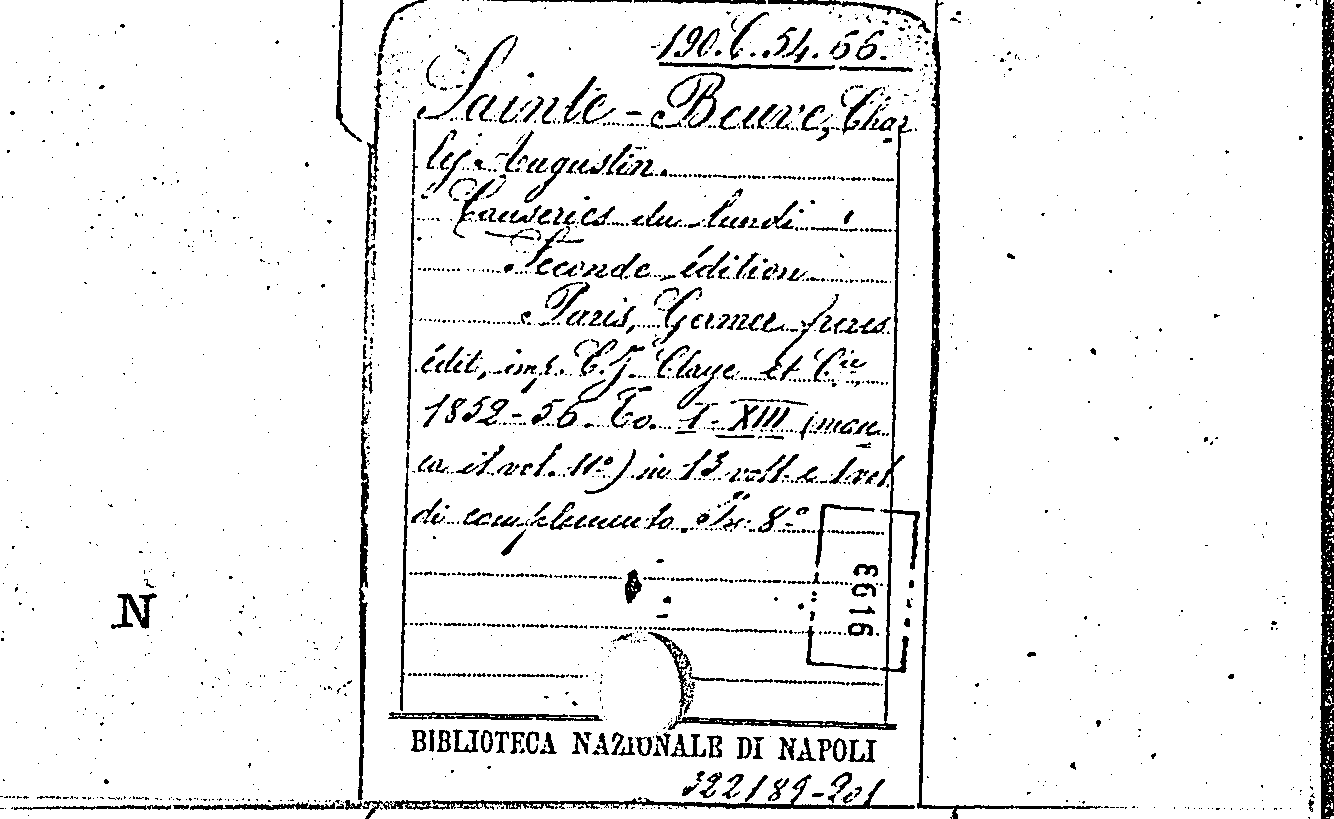 190.C.54.66.
Sainte-Beuve, Char
les Augustin.
Causeries du lundi
Seconde édition.
Paris, Germer frères
édit, imp. C.J. Claye et Cie
1852-56. To. I-XIII (man
ca il vol. 11º) in 13 voll. e 1 vol
di complemento In 8º
6193
N
BIBLIOTECA NAZIONALE DI NAPOLI
322189-201